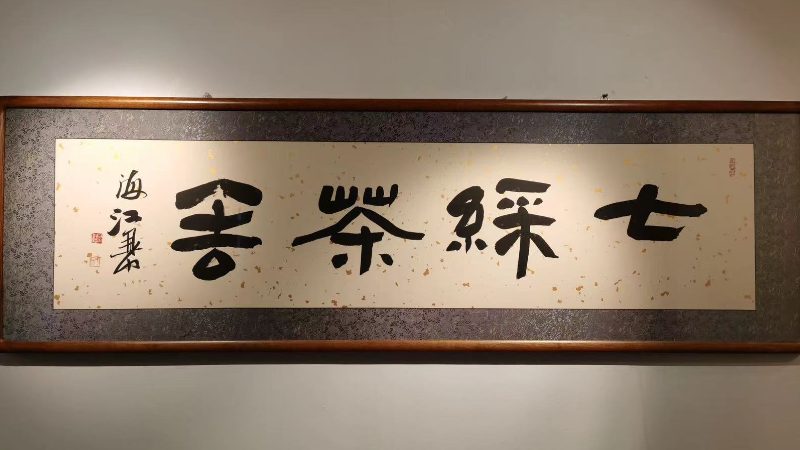 七綵茶舍
海江